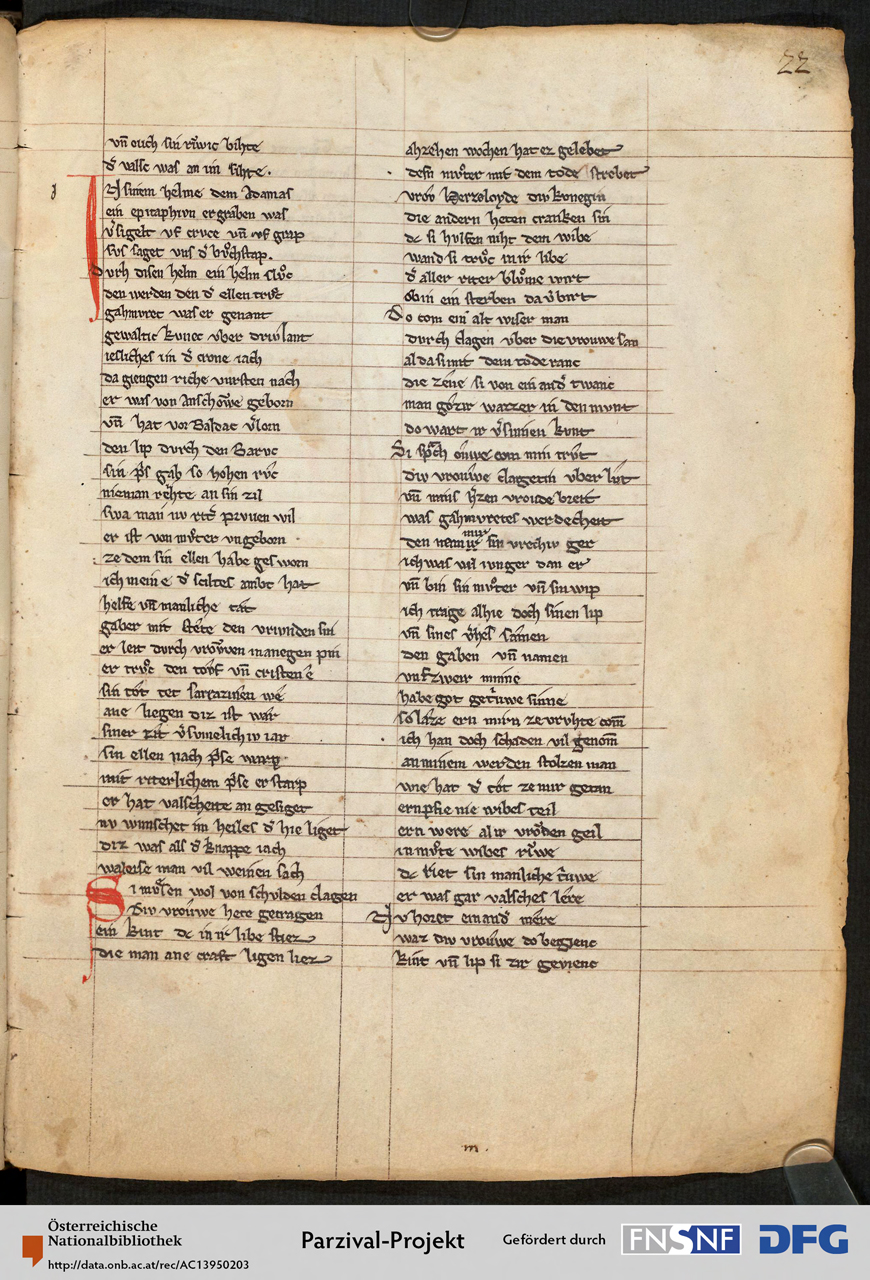 22
vn̄ ouch sin rv̂wic bihte
d͛ valsc was an im sihte.
J
In sinem helme dem Adamas
ein epitaphivn ergraben was
v͛sigelt vf cruce vn̄ vf grap
svs saget vns d͛ bv̊chstap.
Dvrh disen helm ein helm slv̊c
den werden den d͛ ellen trv̊c
gahmvret was er genant
gewaltic kunec vber driv lant
iesliches im d͛ crone iach
da giengen riche vursten nach
er was von Anschowe geborn
vn̄ hat vor Baldac v͛lorn
den lip durch den Baruc
sin p͛s gab so hohen rv̊c
nieman rehte an sin zil
swa man iv rit͛ pruuen wil
er ist von mv̊ter vngeborn
ze dem sin ellen habe gesworn
ich meine d͛ sciltes ambt hat
helfe vn̄ manliche tat
gaber mit stete den vriunden sin
er leit durch vrowen manegen pin
er trv̊c den tovf vn̄ cristen e
sin tot tet sarrazinen we
ane liegen diz ist war
siner zit v͛sunnelich iv iar
sin ellen nach p͛se warp
mit riterlichem p͛se er starp
er hat valscheite an gesiget
nv wunschet im heiles d͛ hie liget
diz was als d͛ knappe iach
waleise man vil weinen sach
Si mv̊sen wol von schvlden clagen
div vrouwe hete getragen
ein kint dc in ir libe stiez
die man ane craft ligen liez
ahzehen wochen hat ez gelebet
desn mv̊ter mit dem tode strebet
vrov Herzoloyde div konegin
die andern heten cranken sin
dc si hulfen niht dem wibe
wand si trv̊c in ir libe
d͛ aller riter blv̊me wirt
ob in ein sterben da v͛birt
Do com ein alt wiser man
durch clagen vber die vrouwe san
al da si mit dem tode ranc
die zene si von ein and͛ twanc
man goz ir wazzer in den mvnt
do wart ir v͛sinnen kunt
Si sp͛ch ouwe com min trvt
div vrouwe claggetin vber lvt
vn̄ mins h͛zen vroude breit
was gahmuretes werdecheit
den nam mir sin vrechiv ger
ich was vil iunger dan er
vn̄ bin sin mv̊ter vn̄ sin wip
ich trage alhie doch sinen lip
vn̄ sines v͛hes samen
den gaben vn̄ namen
vnser zweir minne
habe got getruwe sinne
so laze ern mirn ze vruhte com̄
ich han doch schaden vil genom̄
an minem werden stolzen man
wie hat d͛ tot ze mir getan
ern pfie nie wibes teil
ern were al ir vrouden geil
in mv̊te wibes rv̊we
dc riet sin manliche truwe
er was gar valsches lere
Nv horet ein and͛ mere
waz div vrouwe do begienc
kint vn̄ lip si zir gevienc
m.
Österreichische
Nationalbibliothek
http://data.onb.ac.at/rec/AC13950203
Parzival-Projekt
Gefördert durch
FNSNF
DFG